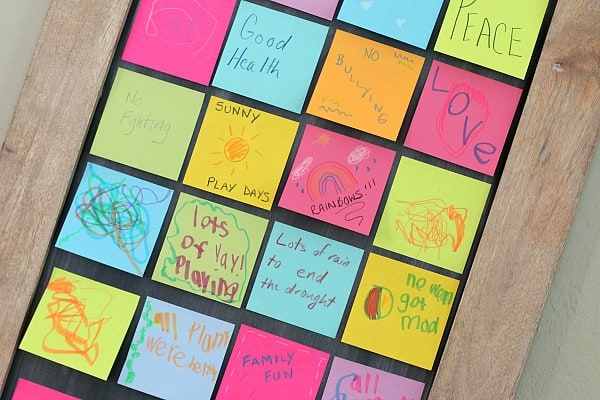 PEACE
Good
Health
NO
BULLYING
LOVE
No
Fighting
SUNNY
PLAY DAYS
RAINBOWS!!!
lots
of Yay!
Playing
Lots of rain
to end
the drought
got
mad
all
were
FAMILY
FUN
all